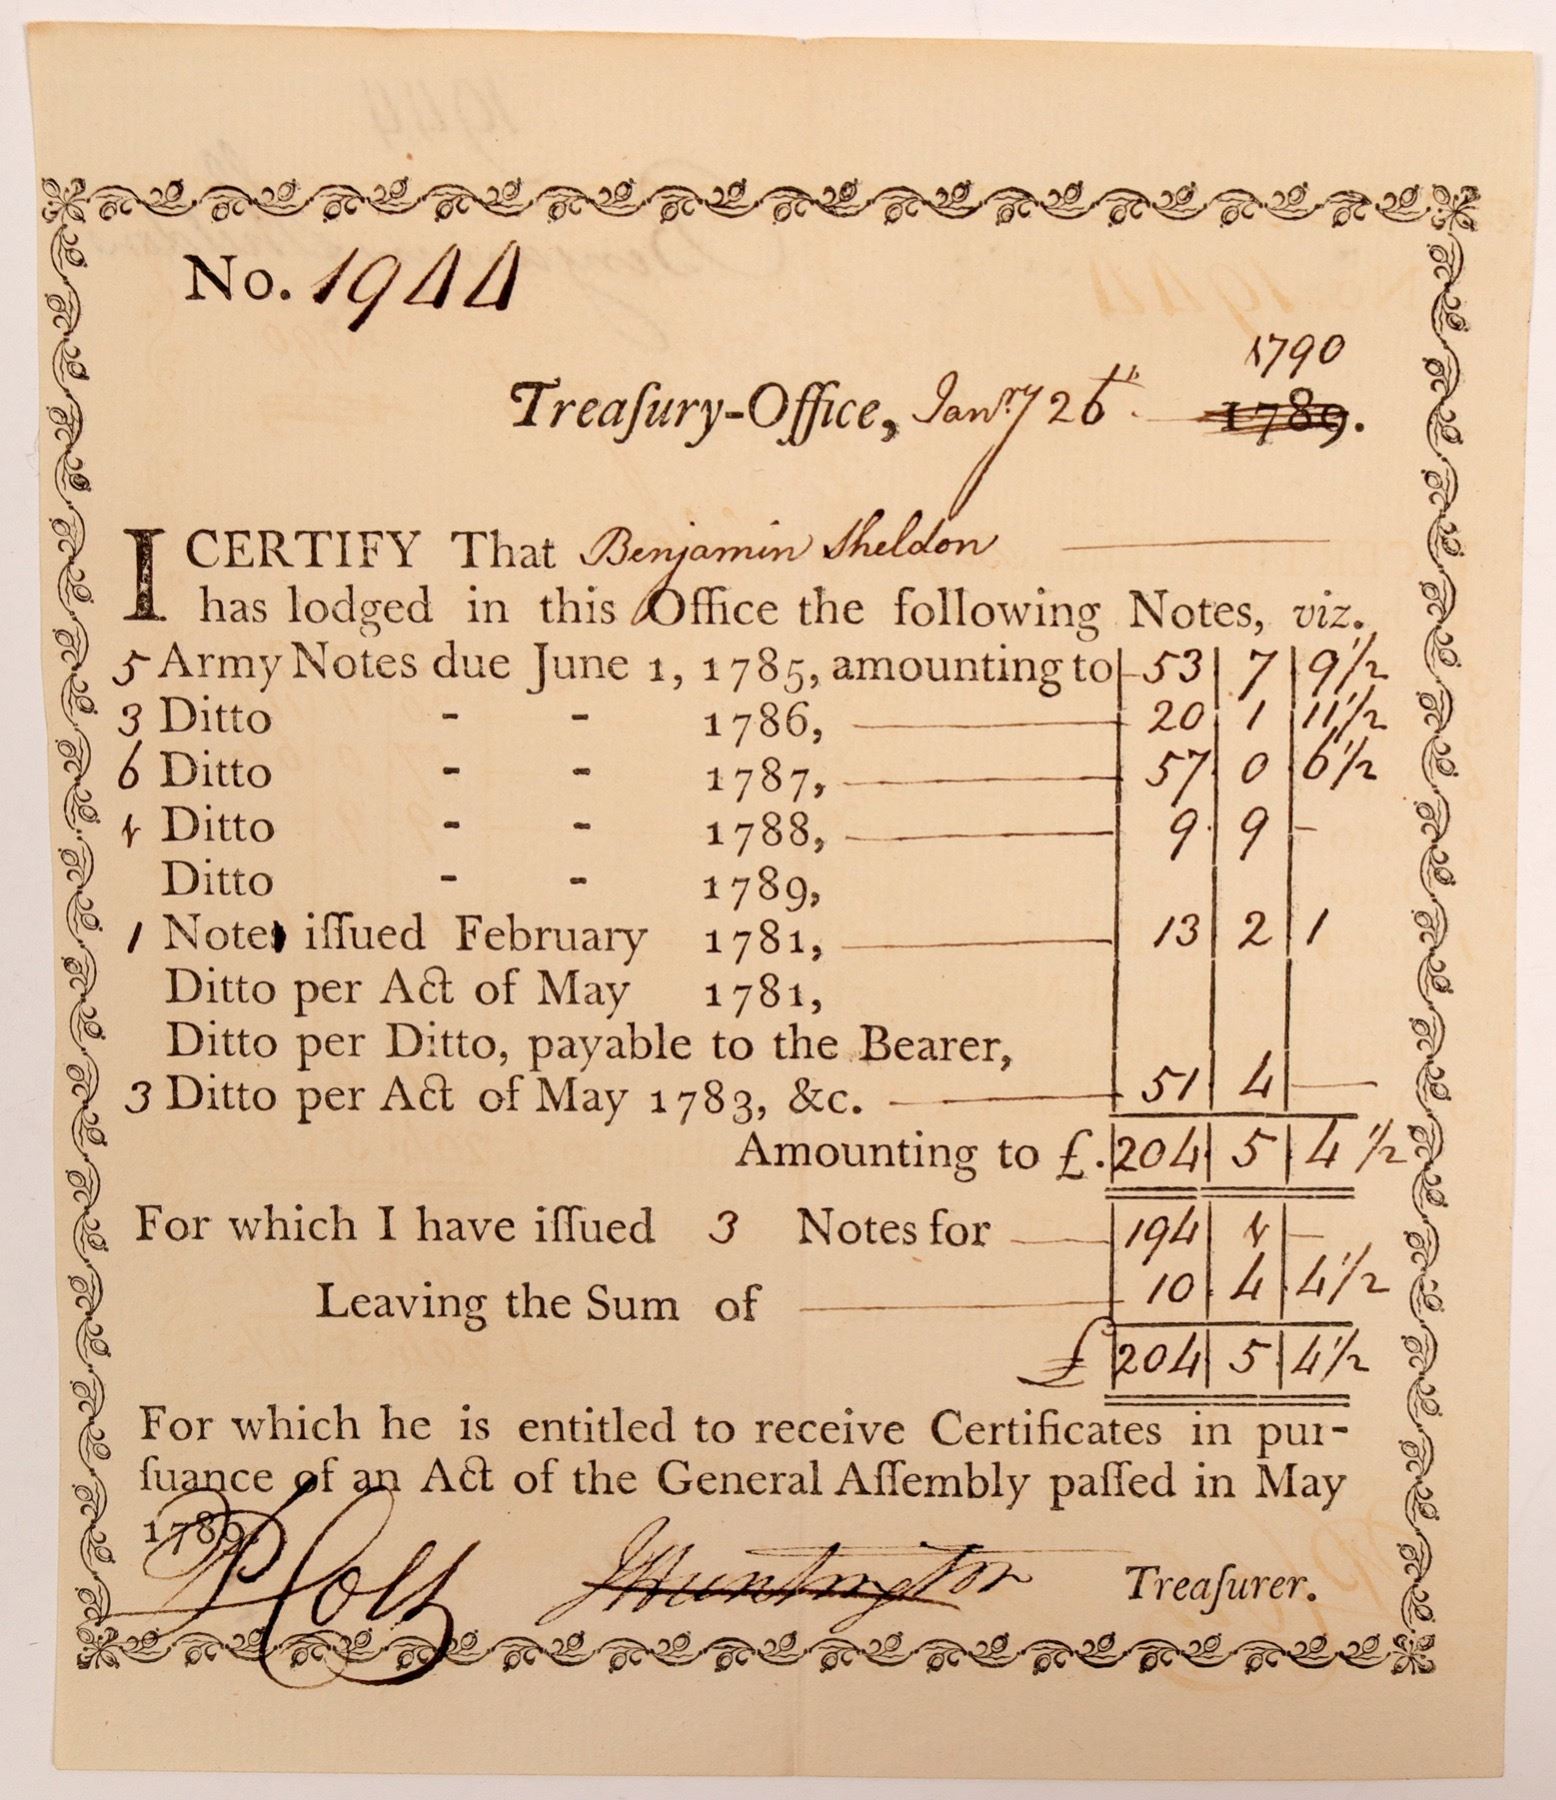 No. 1944
1790
Treaſury-Office, Janry 26th. 1789.
I CERTIFY That Benjamin Sheldon
has lodged in this Office the following Notes, viz.
5 Army Notes due June 1, 1785, amounting to 53 7 9 1/2
3 Ditto - - 1786, 20 1 11 1/2
6 Ditto - - 1787, 57 0 6 1/2
1 Ditto - - 1788, 9 9 -
Ditto - - 1789,
1 Note iſſued February 1781, 13 2 1
Ditto per Act of May 1781,
Ditto per Ditto, payable to the Bearer,
3 Ditto per Act of May 1783, &c. 51 4 -
Amounting to £. 204 5 4 1/2
For which I have iſſued 3 Notes for 194 1 -
Leaving the Sum of 10 4 4 1/2
£ 204 5 4 1/2
For which he is entitled to receive Certificates in pur-
ſuance of an Act of the General Aſſembly paſſed in May
1789.
P Colt J Huntington Treaſurer.